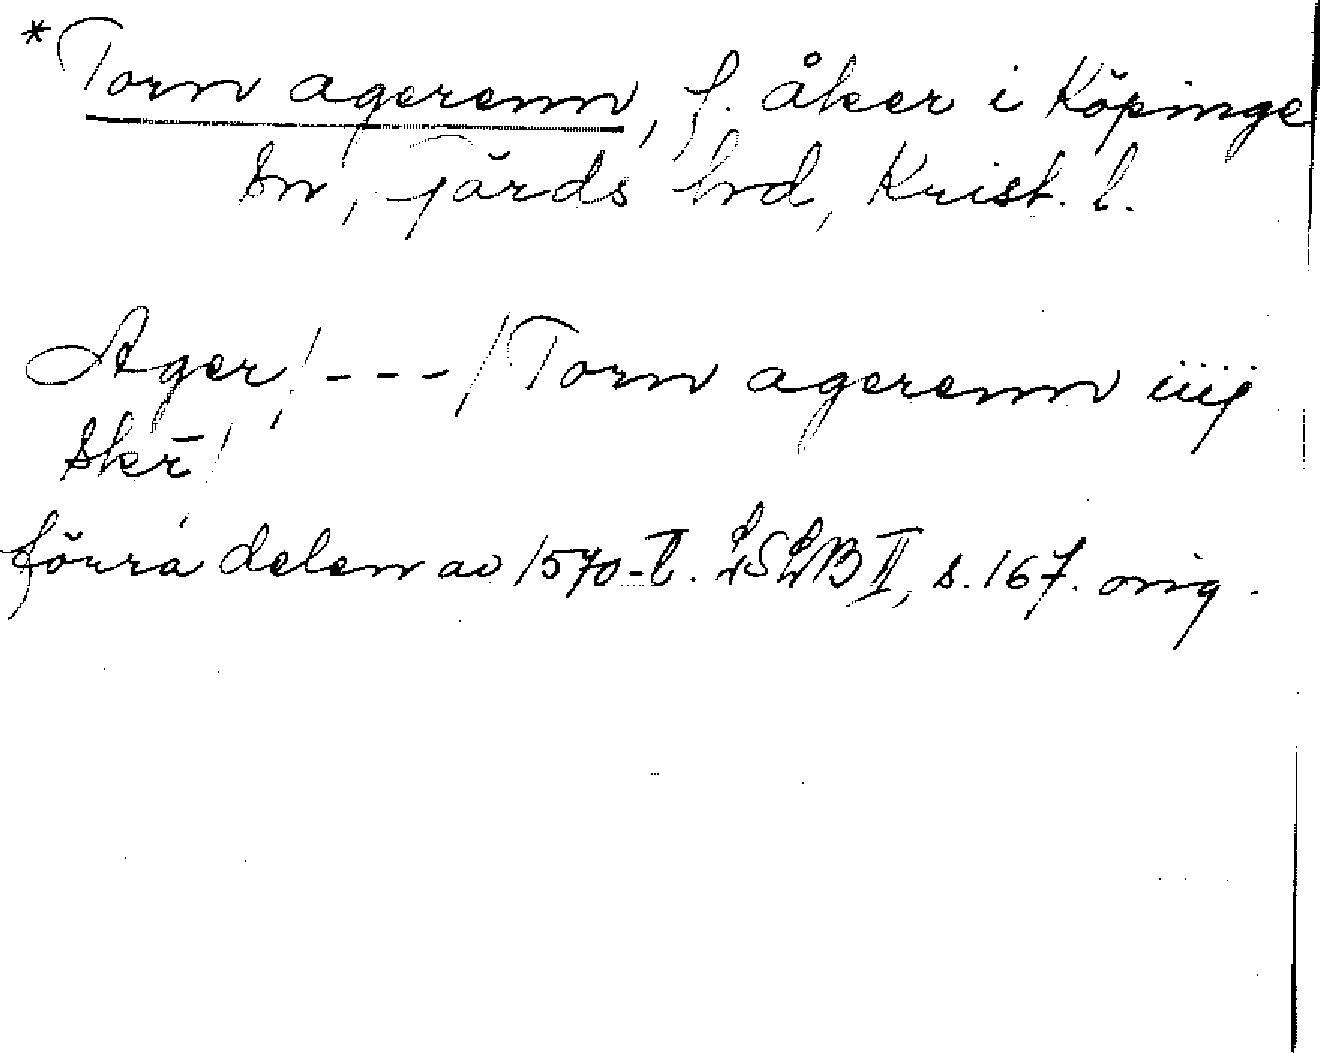 *Torn agerenn, f. åker i Köpinge
sn, Gärds hrd, Krist. l.
Ager/---/Torn agerenn iiij
skr̄/
förra delen av 1570-t. LSLB II, s. 167. orig.